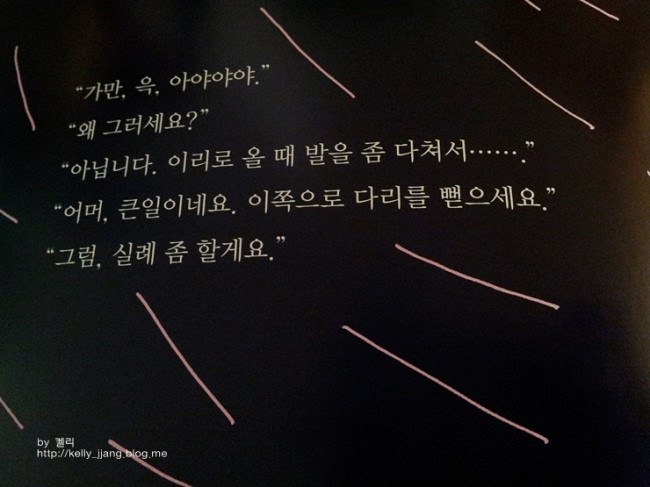 “가만, 윽, 아야야야.”
“왜 그러세요?”
“아닙니다. 이리로 올 때 발을 좀 다쳐서…….”
“어머, 큰일이네요. 이쪽으로 다리를 뻗으세요.”
“그럼, 실례 좀 할게요.”
by 켈리
http://kelly_jjang.blog.me